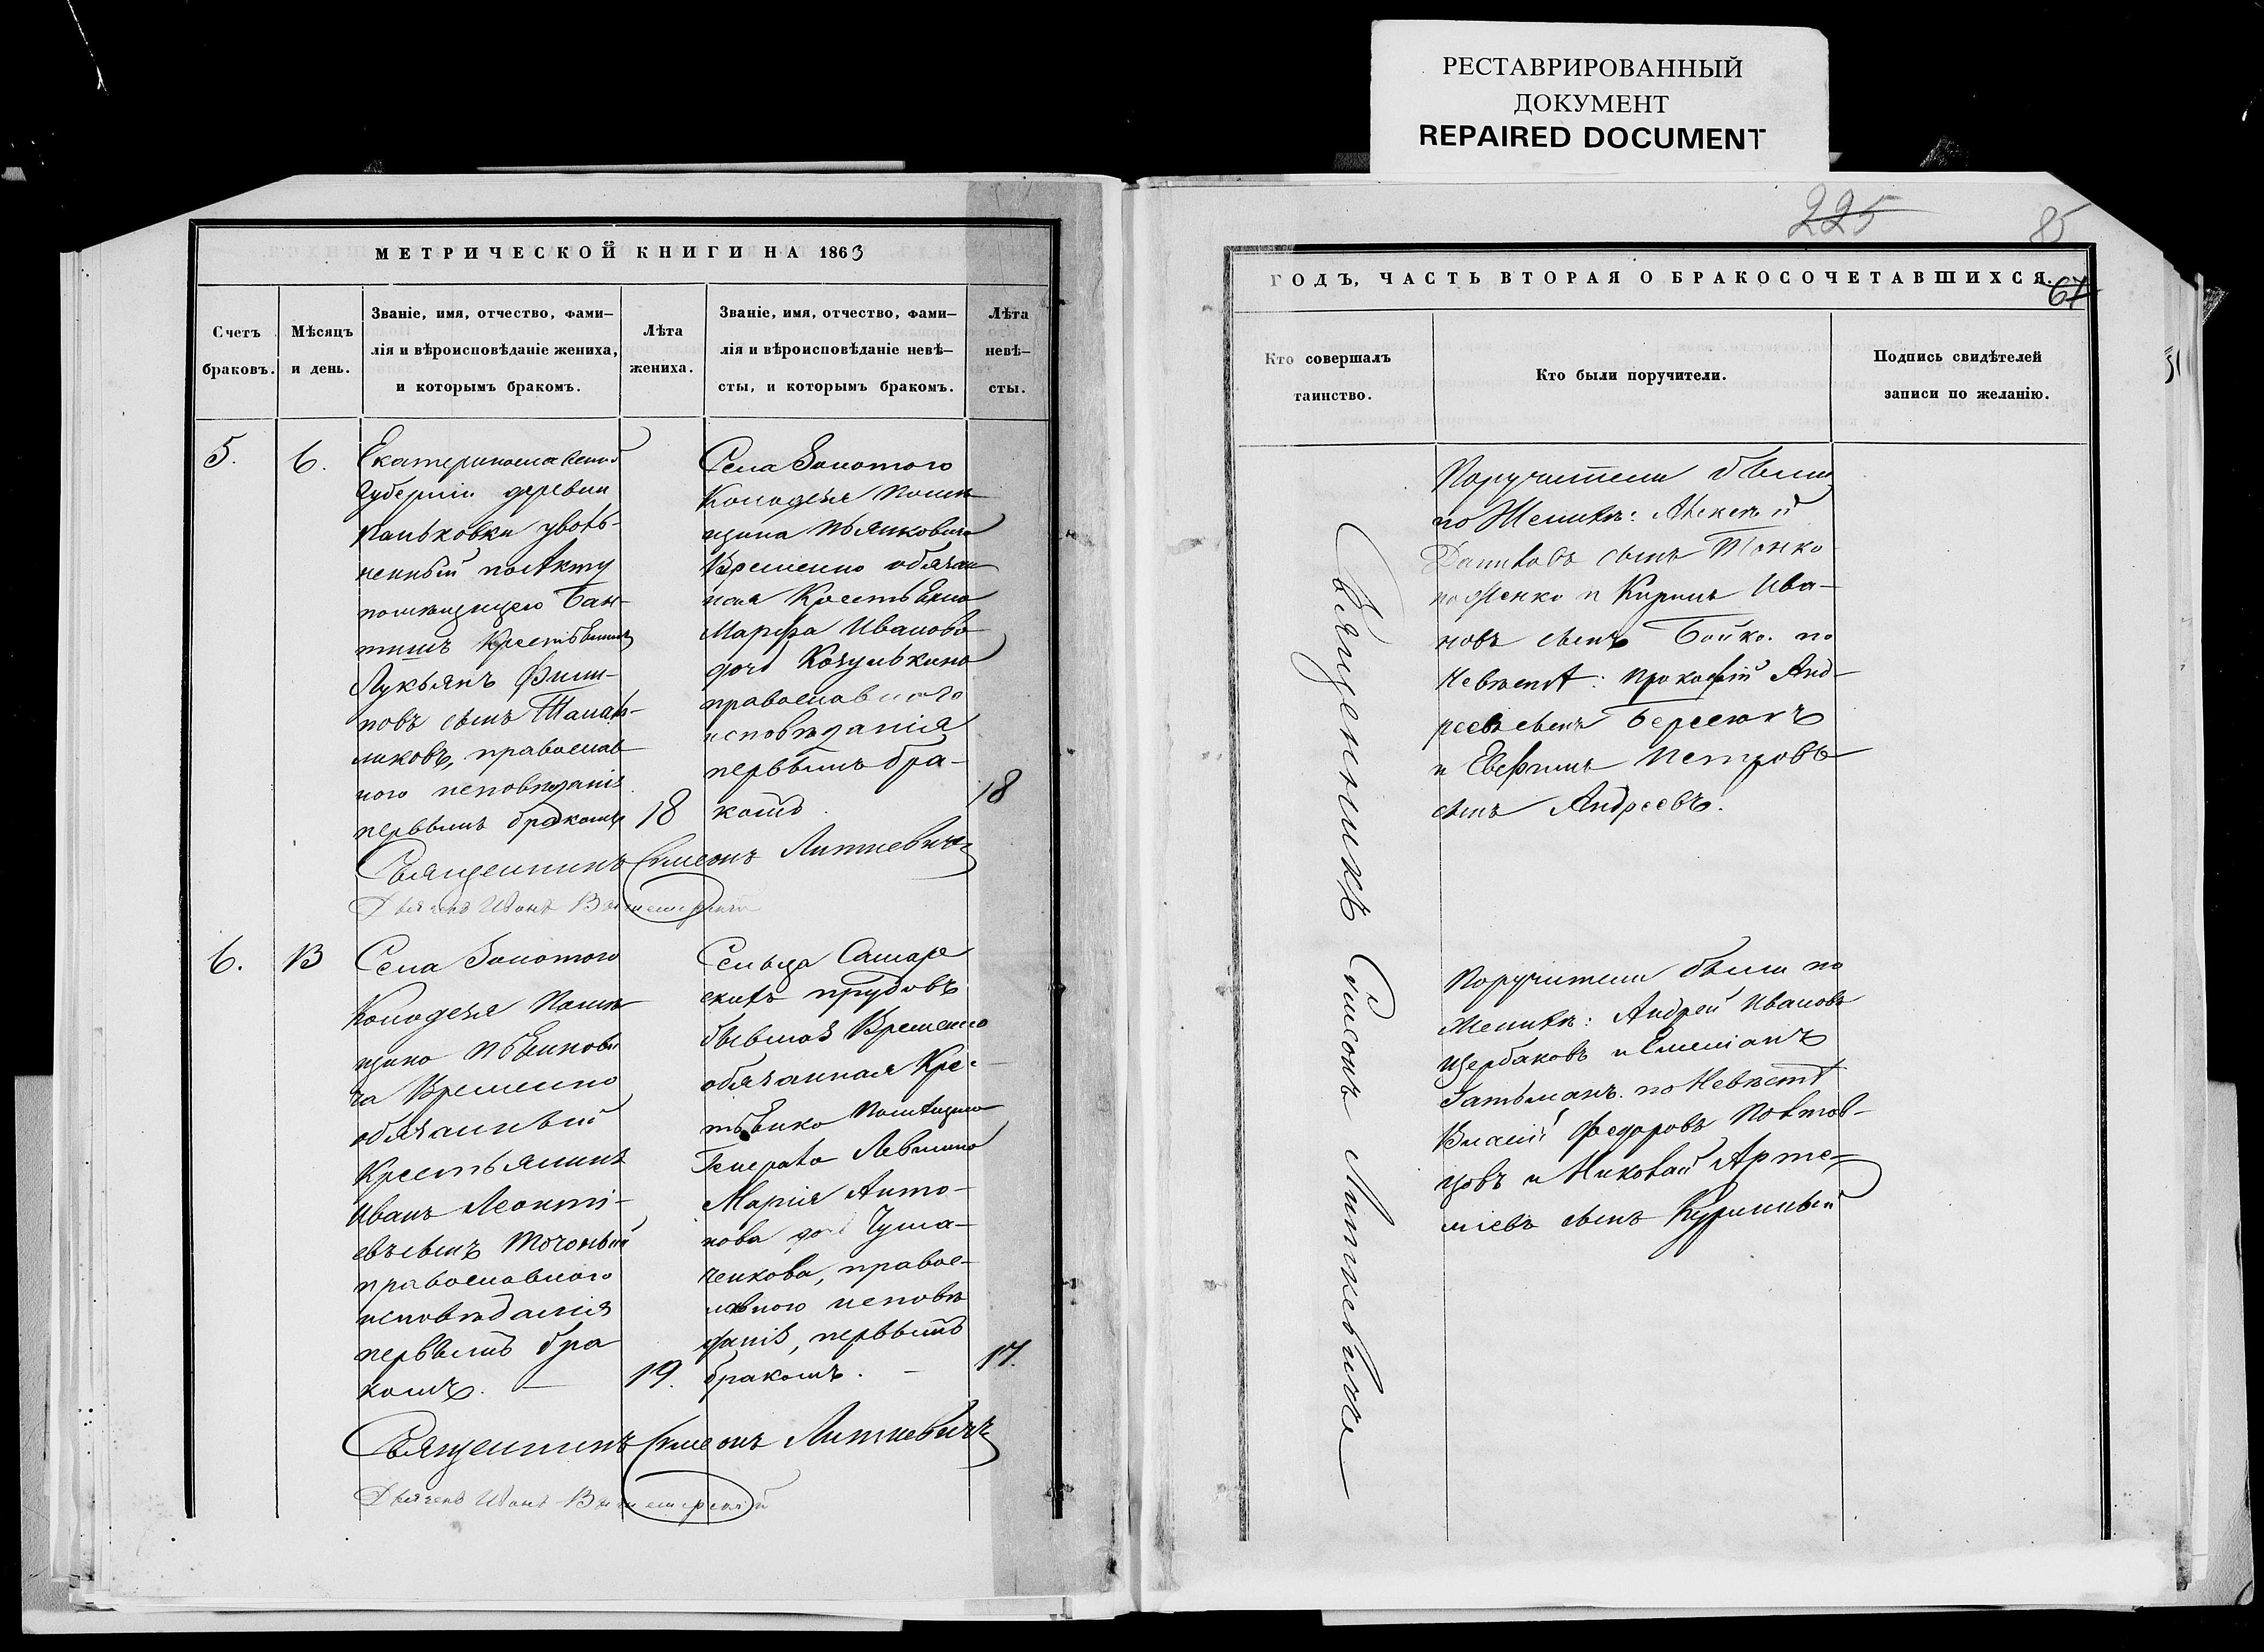 РЕСТАВРИРОВАННЫЙ
ДОКУМЕНТ
REPAIRED DOCUMENT
МЕТРИЧЕСКОЙ КНИГИ НА 1863
Счетъ
браковъ.
Мѣсяцъ
и день.
Званіе, имя, отчество, фами-
лія и вѣроисповѣданіе жениха,
и которымъ бракомъ.
Лѣта
жениха.
Званіе, имя, отчество, фами-
лія и вѣроисповѣданіе невѣ-
сты, и которымъ бракомъ.
Лѣта
невѣ-
сты.
5.
6.
Екатеринославской
Губерніи деревни
уволь-
ненный по Акту
Крестьянинъ
Лукьянъ Филип-
повъ сынъ
православ
ного исповѣданія
первымъ бракомъ
18
Села Золотого
Колодезя Помѣ
щика
Временно обязан
ная Крестьянка
Марфа Иванова
дочь Козулькина
православного
исповѣданія
первымъ бра-
комъ
18
Священникъ Симеонъ Литкевичъ
Дьячекъ Иванъ
6.
13
Села Золотого
Колодезя Помѣ
щика
ча Временно
обязанный
Крестьянинъ
Иванъ Леонті-
евъ сынъ Точоный
православного
исповѣданія
первымъ бра
комъ. —
19.
Сельца Самаре
скихъ прудовъ
бывшая Временно
обязанная Крес-
тьянка Помѣщика
Генерала Левшина
Марія Анто-
нова дочь Чума-
ченкова, правос-
лавного исповѣ
данія, первымъ
бракомъ. —
17.
Священникъ Симеонъ Литкевичъ
Дьячекъ Иванъ
225
85
ГОДЪ, ЧАСТЬ ВТОРАЯ О БРАКОСОЧЕТАВШИХСЯ.
67
Кто совершалъ
таинство.
Кто были поручители.
Подпись свидѣтелей
записи по желанію.
Священникъ Симеонъ Литкевичъ
Поручители были
по Женихѣ: Алексѣй
Даниловъ сынъ
и Кирилъ Ива-
новъ сынъ Бойко. по
Невѣстѣ: Прокофій Анд-
реевъ сынъ
и Евфимъ Петровъ
сынъ Андреевъ.
Поручители были по
Женихѣ: Андрей Ивановъ
Щербаковъ и Емеліанъ
Гатьманъ. по Невѣстѣ
Власій Федоровъ Полтов-
цовъ и Николай Арте-
міевъ сынъ Куринный